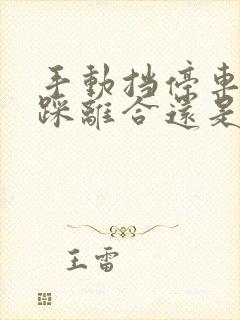 手動挡停車
踩離合還是
王雷